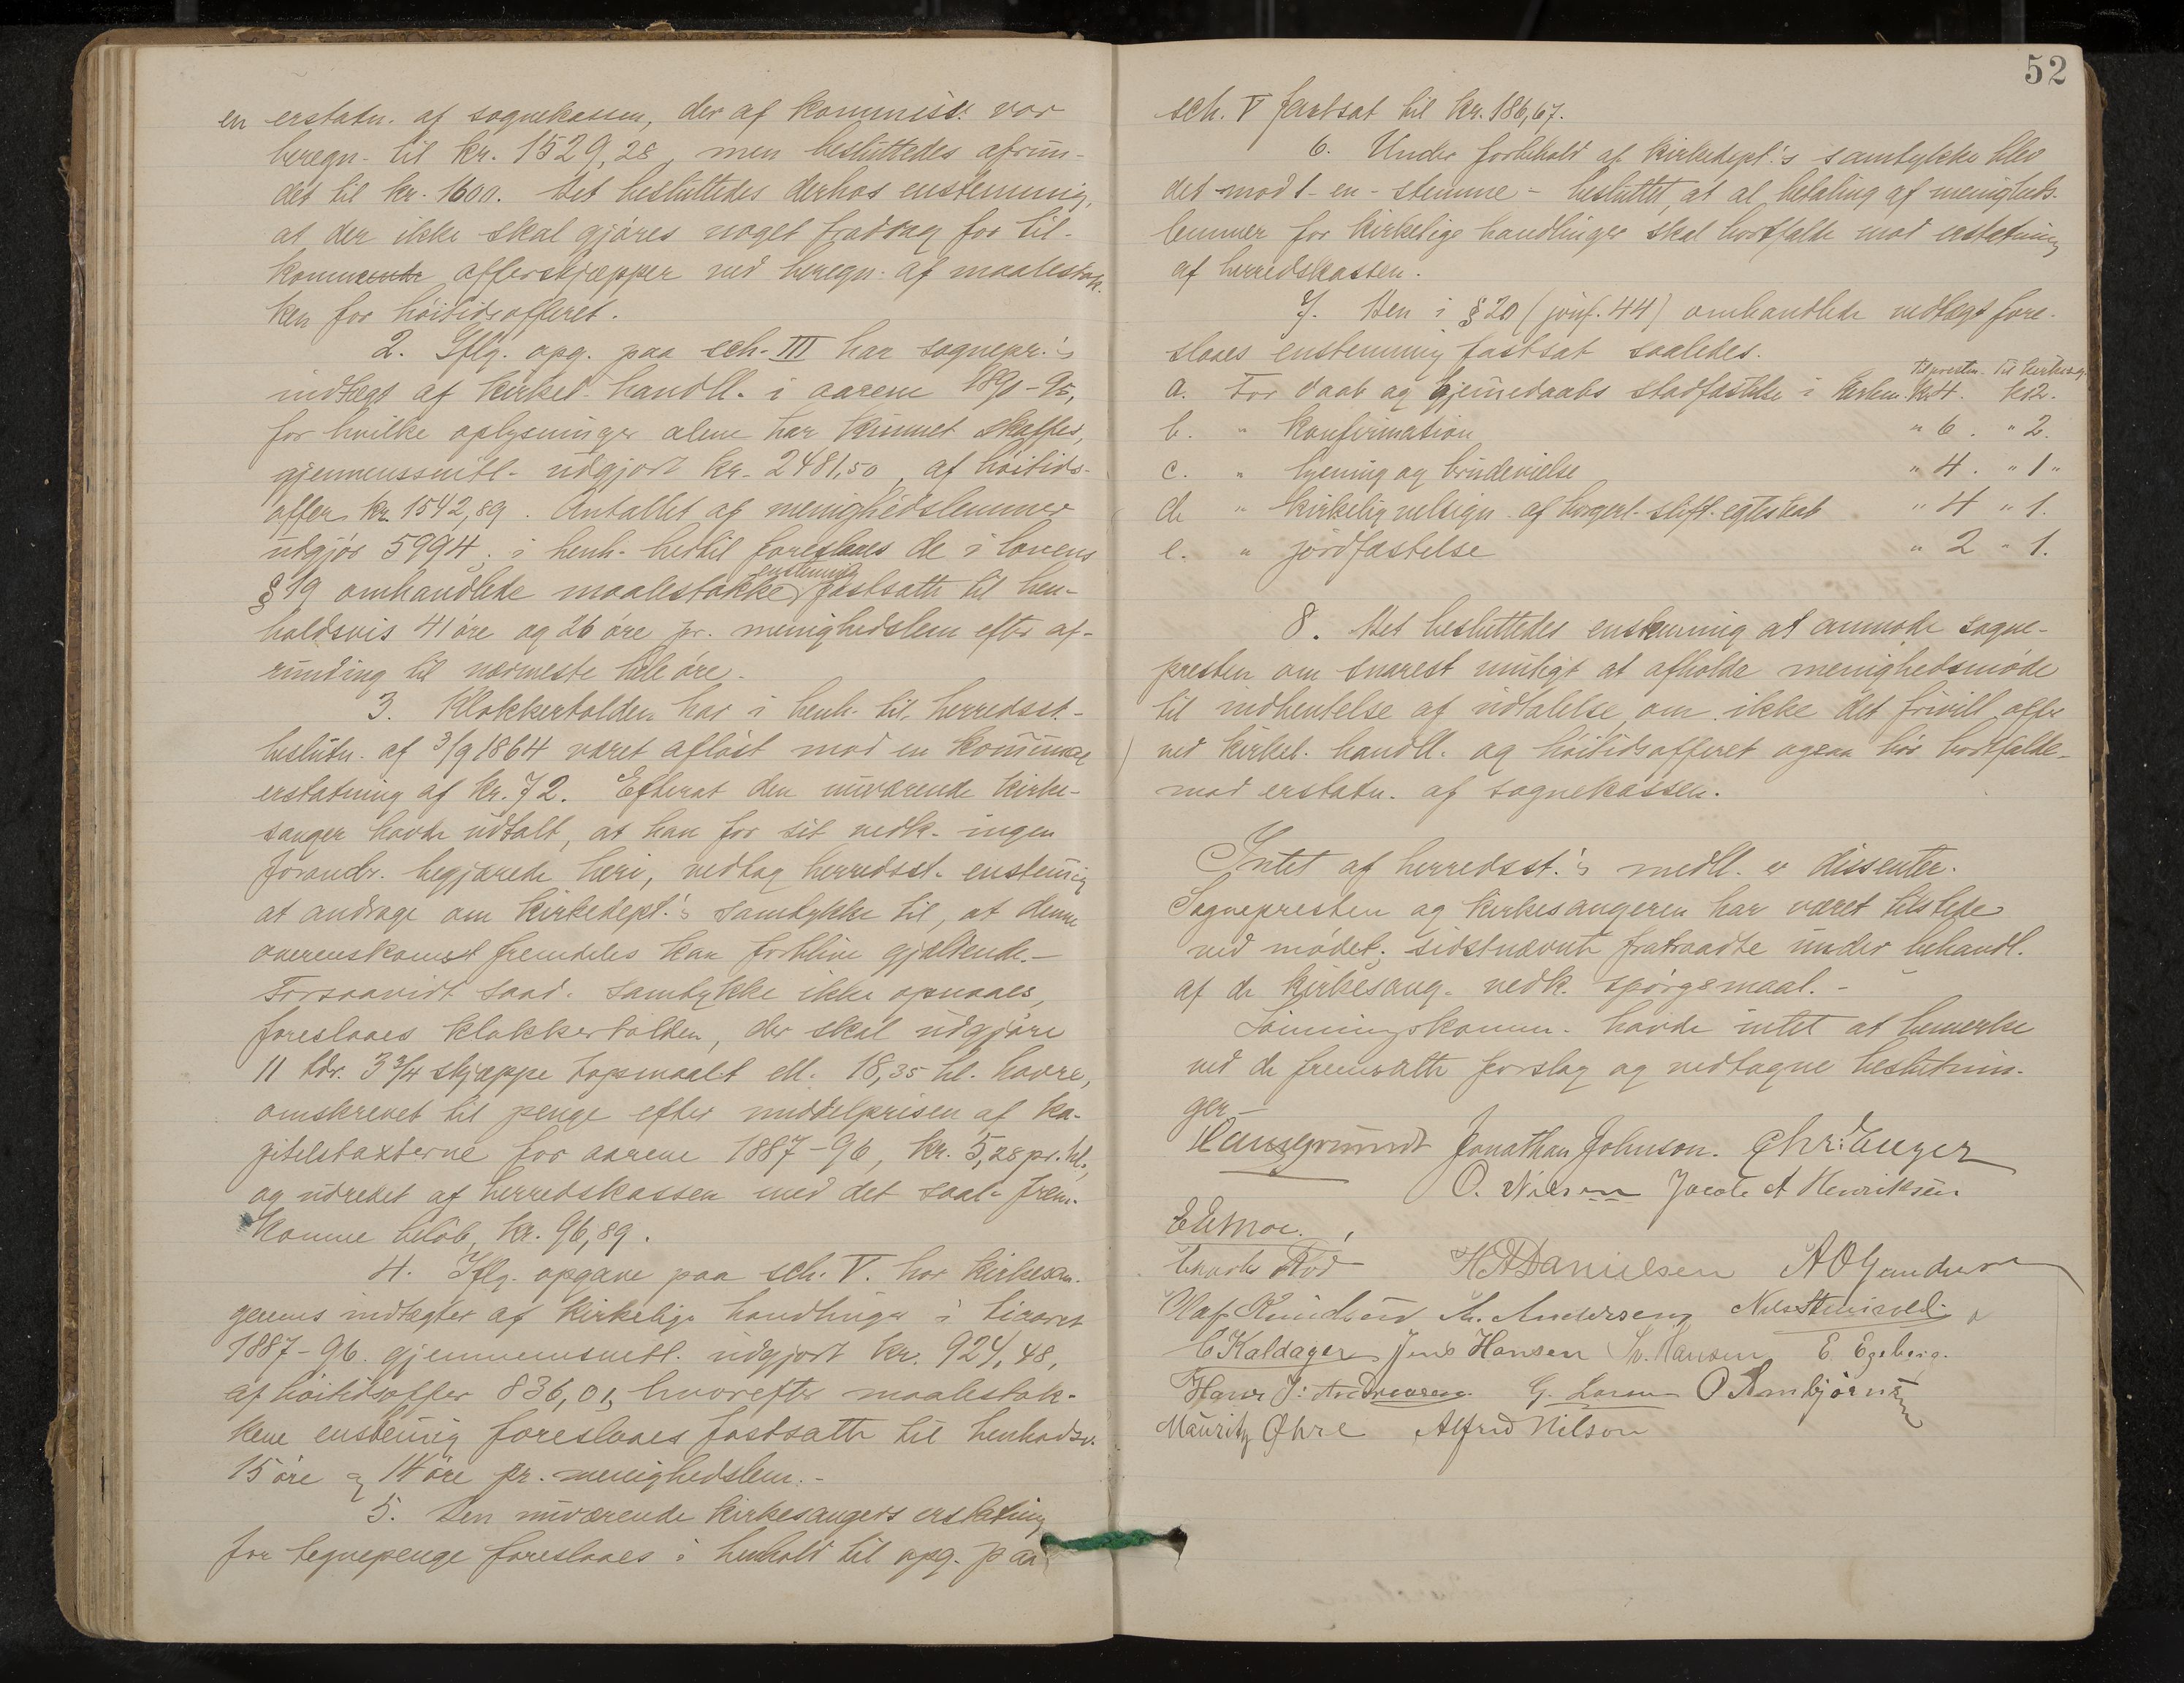 en erstatn. af sognekassen, der af kommiss: var
beregn. til kr. 1529,28, men besluttedes afrun-
det til kr. 1600. Det besluttedes derhos enstemmig,
at der ikke skal gjøres noget fradrag for til-
kommende offerskjæpper ved beregn. af maalestok-
ken for høitidsofferet.
2. Iflg. opg. paa sch. III har sognepr.'s
indtægt af kirkel. handll. i aarene 1890-95,
for hvilke oplysninger alene har kunnet skaffes,
gjennemsnitl. udgjort kr. 2481,50, af høitids-
offer kr. 1542,89. Antallet af menighedslemmer
udgjør 5994. i henh. hertil foreslaaes de i lovens
enstemmig
§ 19 omhandlede maalestokke fastsatte til hen-
holdsvis 41 øre og 26 øre pr. menighedslem efter af-
runding til nærmeste hele øre.
3. Klokkertolden har i henh. til herredsst.
beslutn. af 3/9 1864 været afløst mod en kommunal
erstatning af kr. 72. Efterat den nuværende kirke-
sanger havde udtalt, at han for sit vedk. ingen
forandr. begjærede heri, vedtog herredsst. enstemmig
at andrage om kirkedept.'s samtykke til, at denne
overenskomst fremdeles kan forblive gjældende.-
Forsaavidt saad. samtykke ikke opnaaes,
foreslaaes klokkertolden, der skal udgjøre
11 tdr. 3 3/4 skjæppe topmaalt ell. 18,35 hl. havre,
omskrevet til penge efter middelprisen af ka-
pitelstaxterne for aarene 1887-96, kr. 5,28 pr. hl.,
og udredet af herredskassen med det saal. frem-
komne beløb, kr. 96,89.
4. Iflg. opgave paa sch. V. har kirkesan-
gerens indtægter af kirkelige handlinger i tiaaret
1887-96 gjennemsnitl. udgjort kr. 924,48,
af høitidsoffer 836,01, hvorefter maalestok-
kene enstemmig foreslaaes fastsatte til henholdsv.
15 øre og 14 øre pr. menighedslem.-
5. Den nuværende kirkesangers erstatning
for tegnepenge foreslaaes i henhold til opg. paa
52
sch. V fastsat til kr. 186,67.
6. Under forbehold af kirkedept.'s samtykke blev
det mod 1 - en - stemme - besluttet, at al betaling af menigheds-
lemmer for kirkelige handlinger skal bortfalde mod erstatning
af herredskassen.
7. Den i § 20 (jónf. 44) omhandlede vedtægt fore-
slaaes enstemmig fastsat saaledes.
Til presten. Til kirkesg.
a. For daab og hjemmedaabs stadfæstelse i kirken. Kr. 4. Kr 2.
b. " konfirmation " 6. " 2.
c. " lysning og brudevielse " 4. " 1 "
d. " kirkelig velsign. af borgerl. stift. egteskab " 4 " 1.
e. " jordfæstelse " 2 " 1.
8. Det besluttedes enstemmig at anmode sogne-
presten om snarest muligt at afholde menighedsmøde
til indhentelse af udtalelse, om ikke det frivill. offer
ved kirkel. handll. og høitidsofferet ogsaa bør bortfalde
mod erstatn. af sognekassen.
Intet af herredsst.'s medll. er dissenter.
Sognepresten og kirkesangeren har været tilstede
ved mødet; sidstnævnte fratraadte under behandl.
af de kirkesang. vedk. spørgsmaal.-
Lønningskomm. havde intet at bemerke
ved de fremsatte forslag og vedtagne beslutnin-
ger.
Jonathan Johnson. Chr: Enger
O. Nilsen Jacob A Henriksen
E Moe.
H A Danielsen A O Gundersen
Olaf Knudsen A. Andersen
C Kaldager Jens Hansen Sv. Hansen E Egeberg.
Hans J: Andreasen. G. Larsen O Arnbjørnsen
Mauritz Øhre Alfred Nilson